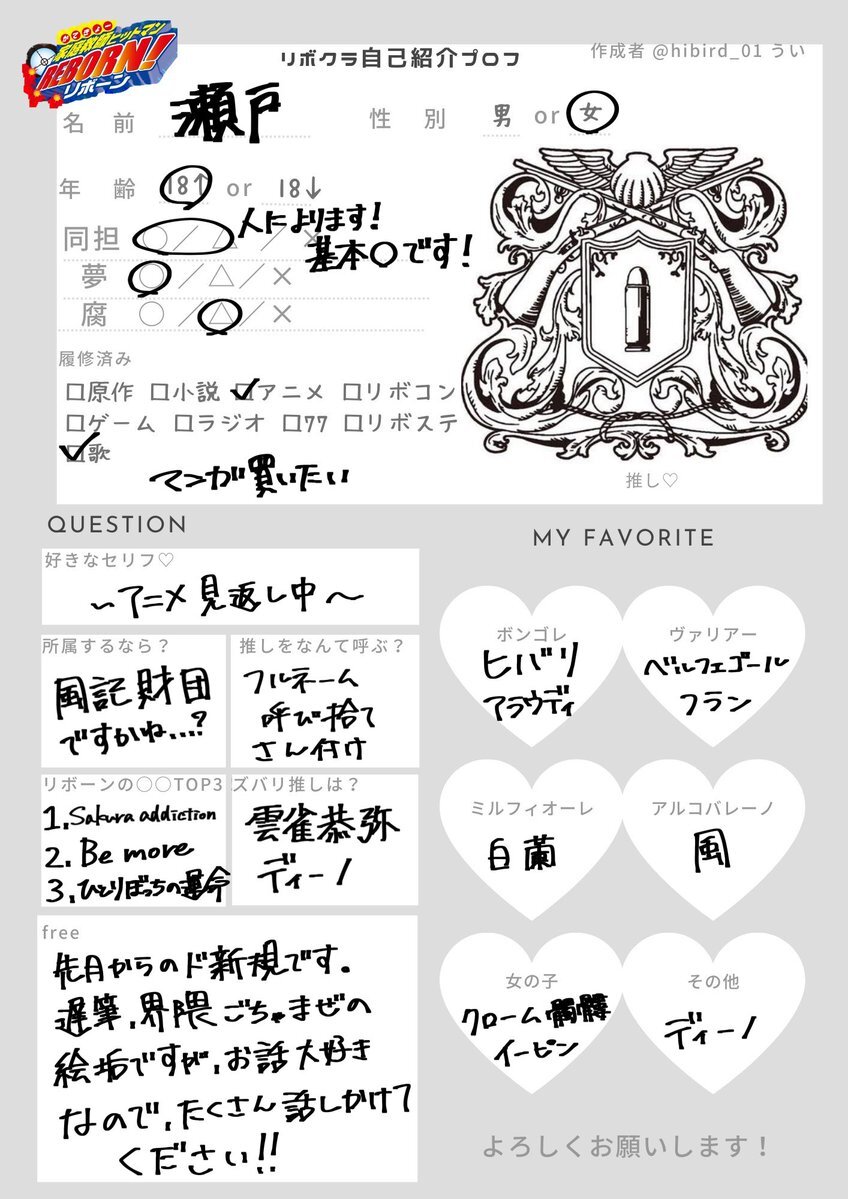 かてきょー
家庭教師ヒットマン
REBORN!
リボーン
リボクラ自己紹介プロフ
作成者 @hibird_01 うい
名前 瀬戸 性別 男 or 女
年齢 18↑ or 18↓
同担 ○／△／× 人によります!
基本○です!
夢 ○／△／×
腐 ○／△／×
履修済み
□原作 □小説 ☑アニメ □リボコン
□ゲーム □ラジオ □77 □リボステ
☑歌
マンガ買いたい
推し♡
QUESTION
好きなセリフ♡
〜アニメ見返し中〜
所属するなら？
風記財団
ですかね...?
推しをなんて呼ぶ？
フルネーム
呼び捨て
さん付け
リボーンの○○TOP3
1.Sakura addiction
2.Be more
3.ひとりぼっちの運命
ズバリ推しは？
雲雀恭弥
ディーノ
free
先月からのド新規です.
遅筆、界隈ごちゃまぜの
絵垢ですが、お話大好き
なので、たくさん話しかけて
ください!!
MY FAVORITE
ボンゴレ
ヒバリ
アラウディ
ヴァリアー
ベルフェゴール
フラン
ミルフィオーレ
白蘭
アルコバレーノ
風
女の子
クローム髑髏
イーピン
その他
ディーノ
よろしくお願いします！